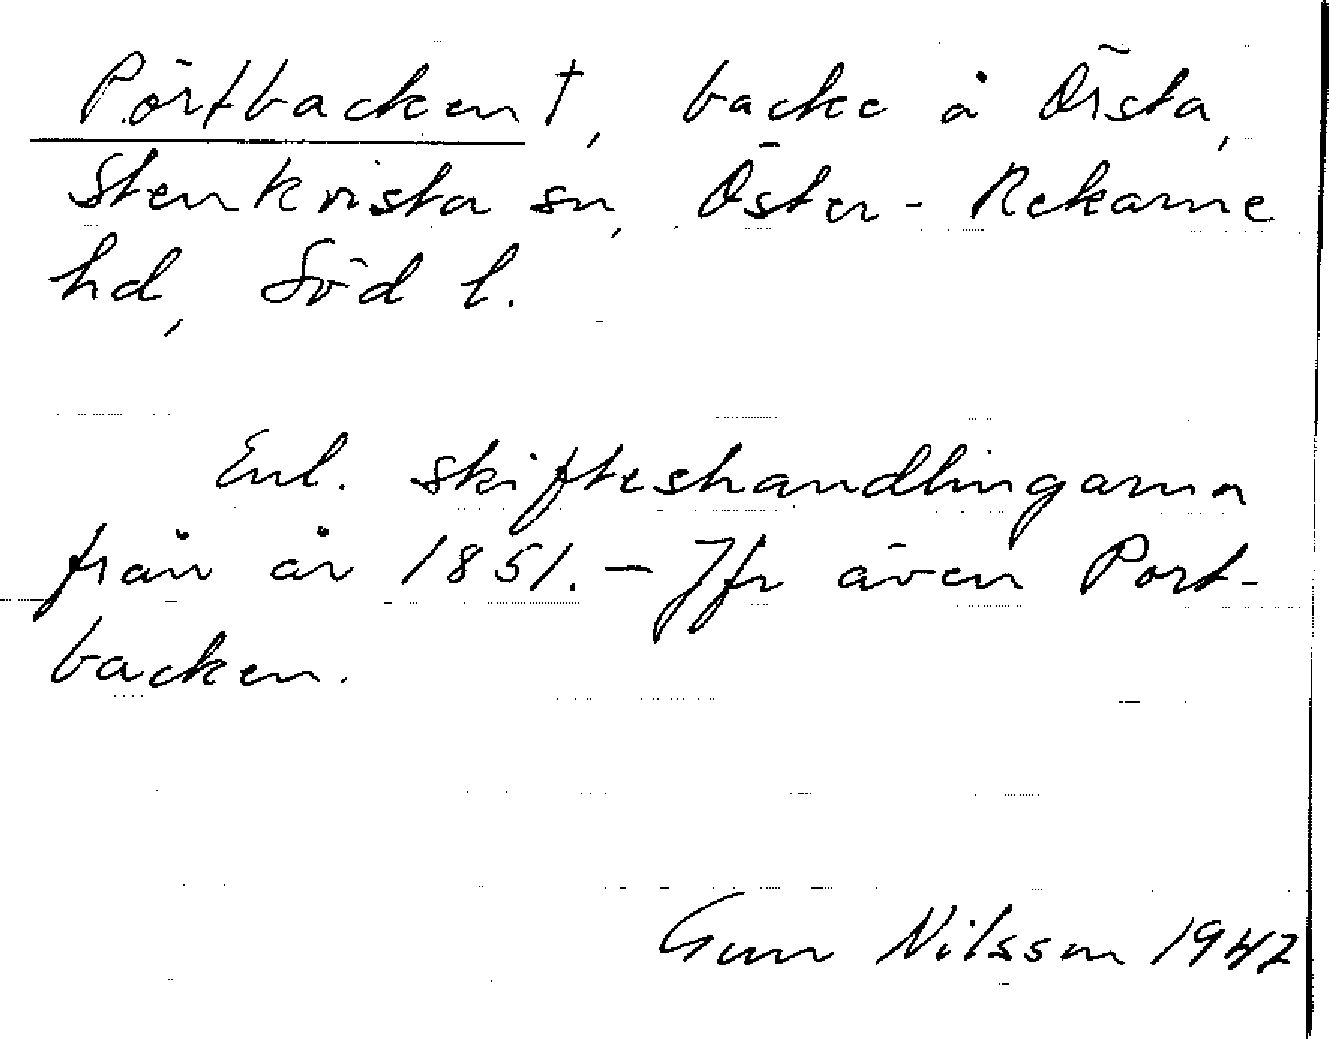 Pörtbacken†, backe å Örsta,
Stenkvista sn, Öster-Rekarne
hd, Söd l.
Enl. skifteshandlingarna
från år 1851. - Jfr även Port-
backen.
Gun Nilsson 1947